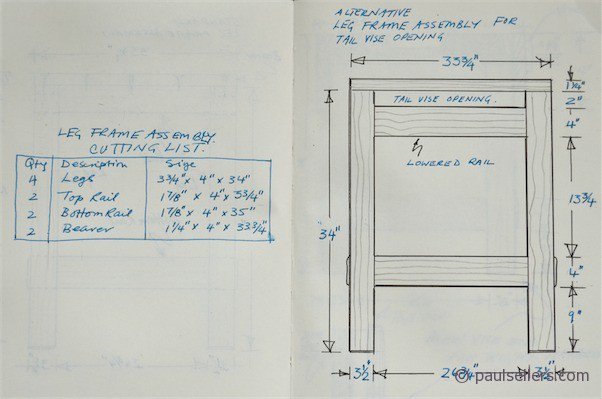 LEG FRAME ASSEMBLY.
CUTTING LIST.
Qty Description Size
4 Legs 3¾" x 4" x 34"
2 Top Rail 1⅞" x 4" x 33¾"
2 Bottom Rail 1⅞" x 4" x 35"
2 Bearer 1¼" x 4" x 33¾"
ALTERNATIVE
LEG FRAME ASSEMBLY FOR
TAIL VISE OPENING
33¾"
TAIL VISE OPENING.
1¼"
2"
4"
LOWERED RAIL
13¾"
34"
4"
9"
3½" 26¾" 3½"
© paulsellers.com